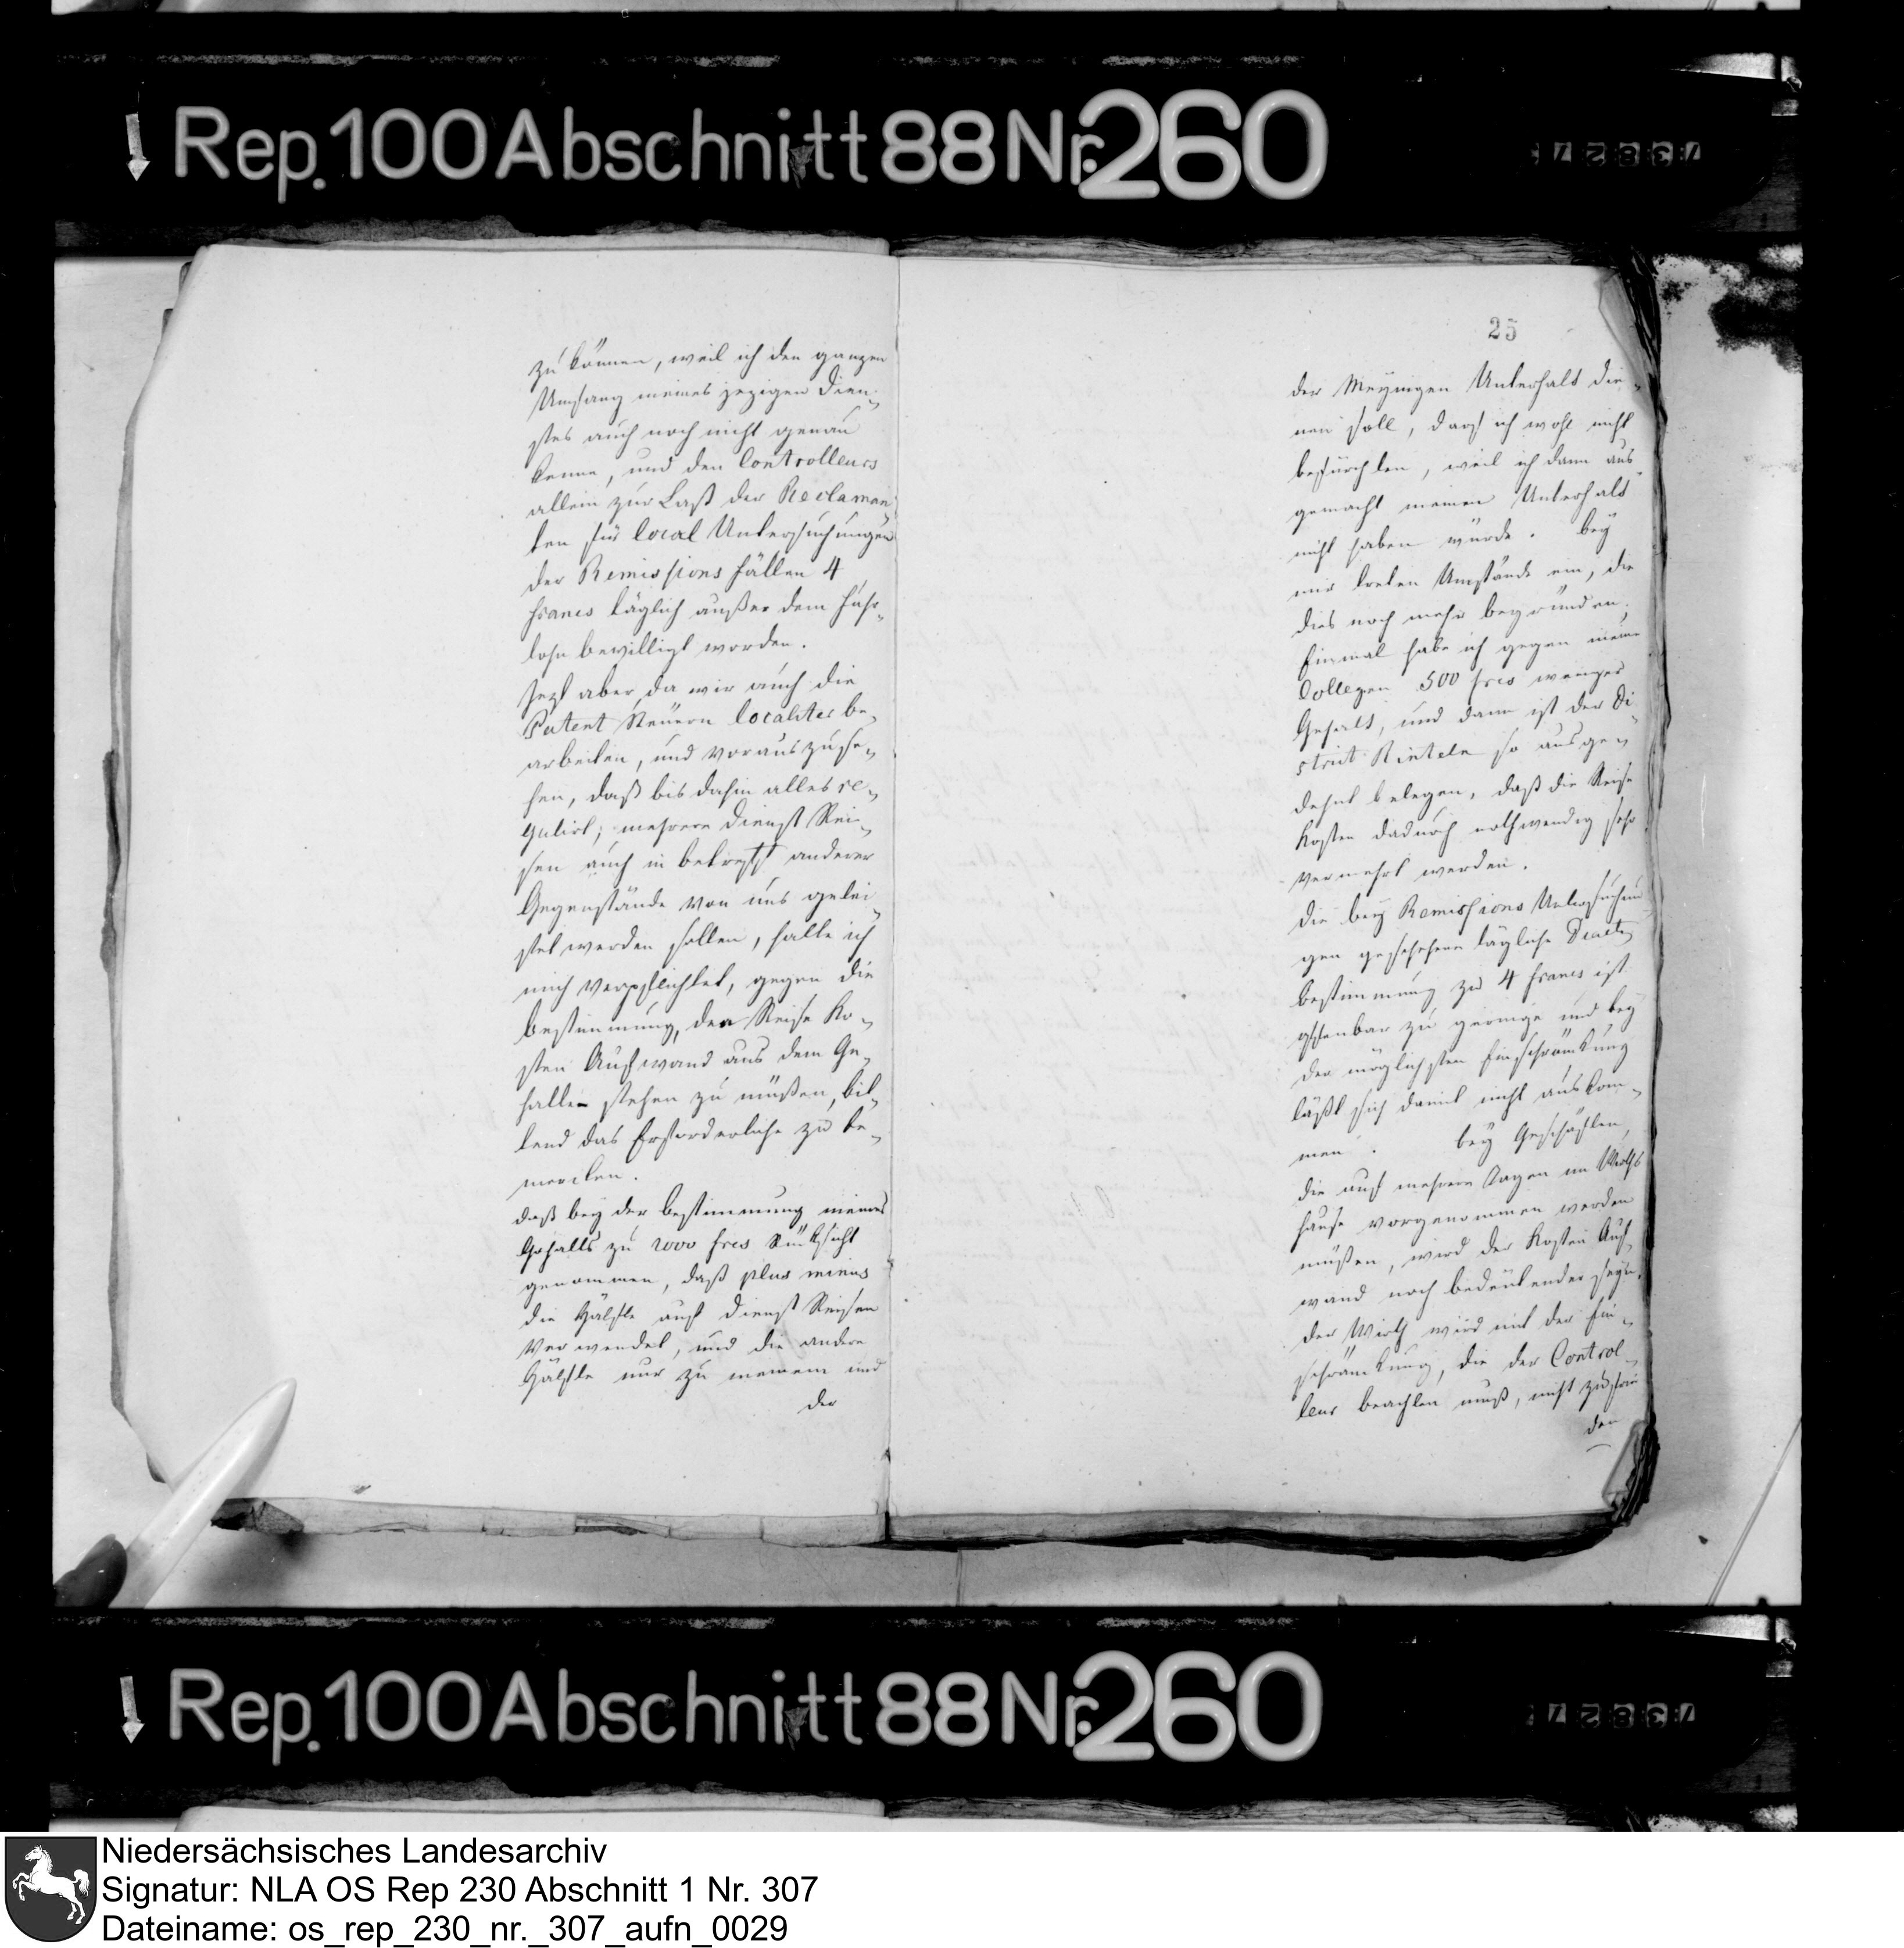 Rep. 100 Abschnitt 88 Nr. 260
73827
zu können, weil ich den ganzen
Umfang meines jezigen Dien-
stes auch noch nicht genau
kenne, und den Controlleurs
allein zur Last der Reclaman-
ten für local Untersuchungen
der Remissions Fällen 4
Francs täglich außer dem Fuhr-
lohn bewilligt worden.
Jezt aber, da wir auch die
Patent Steuern localiter be-
arbeiten, und vorauszuse-
hen, daß bis dahin alles re-
gulirt, mehrere Dienst Rei-
sen auch in betreff anderer
Gegenstände von uns gelei-
stet werden sollen, halte ich
mich verpflichtet, gegen die
Bestimmung, den Reise Ko-
sten Aufwand aus dem Ge-
halte stehen zu müßen, bit-
tend das Erforderliche zu be-
mercken.
daß bey der Bestimmung meines
Gehalts zu 2000 frcs Rücksicht
genommen, daß plus minus
die Hälfte auf Dienst Reisen
verwendet, und die andere
Hälfte nur zu meinem und
der
25
der Meynigen Unterhalt die-
nen soll, darf ich wohl nicht
befürchten, weil ich dann aus-
gemacht meinen Unterhalt
nicht haben würde. bey
mir treten Umstände ein, die
dies noch mehr begründen.
Einmal habe ich gegen meine
Collegen 500 frcs weniger
Gehalt, und dann ist der Di-
strict Rinteln so ausge-
dehnt belegen, daß die Reise
Kosten dadurch nothwendig sehr
vermehrt werden.
die bey Remissions Untersuchun-
gen geschehene tägliche Diaeten
bestimmung zu 4 Francs ist
offenbar zu geringe und bey
der möglichsten Einschränkung
läßt sich damit nicht auskom-
men. bey Geschäften,
die auf mehrere Tagen im Wirths
hause vorgenommen werden
müßen, wird der Kosten Auf-
wand noch bedeutender seyn.
der Wirth wird mit der Ein-
schränkung, die der Control-
leur beachten muß, nicht zufrie-
den
Rep. 100 Abschnitt 88 Nr. 260
73827
Niedersächsisches Landesarchiv
Signatur: NLA OS Rep 230 Abschnitt 1 Nr. 307
Dateiname: os_rep_230_nr._307_aufn_0029